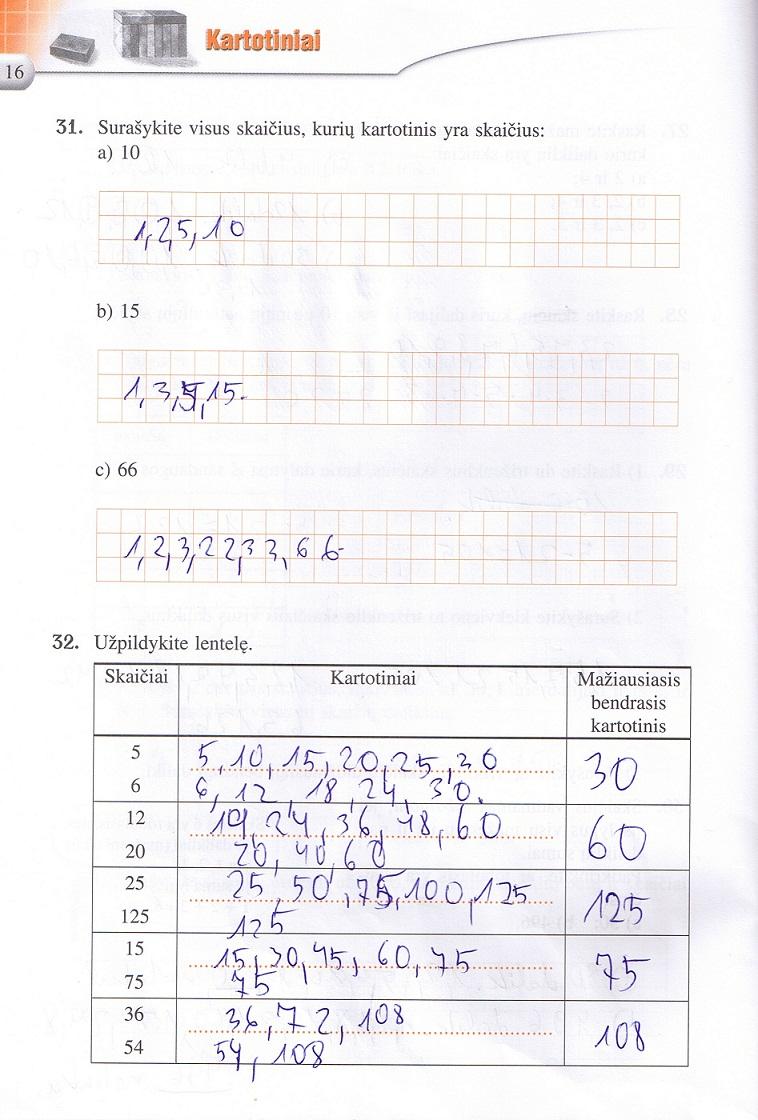 Kartotiniai
16
31. Surašykite visus skaičius, kurių kartotinis yra skaičius:
a) 10
1, 2, 5, 10
b) 15
1, 3, 5, 15.
c) 66
1, 2, 3, 22, 33, 66
32. Užpildykite lentelę.
Skaičiai Kartotiniai Mažiausiasis bendrasis kartotinis
5 5, 10, 15, 20, 25, 30 30
6 6, 12, 18, 24, 30.
12 12, 24, 36, 48, 60 60
20 20, 40, 60
25 25, 50, 75, 100, 125 125
125 125
15 15, 30, 45, 60, 75 75
75 75
36 36, 72, 108 108
54 54, 108